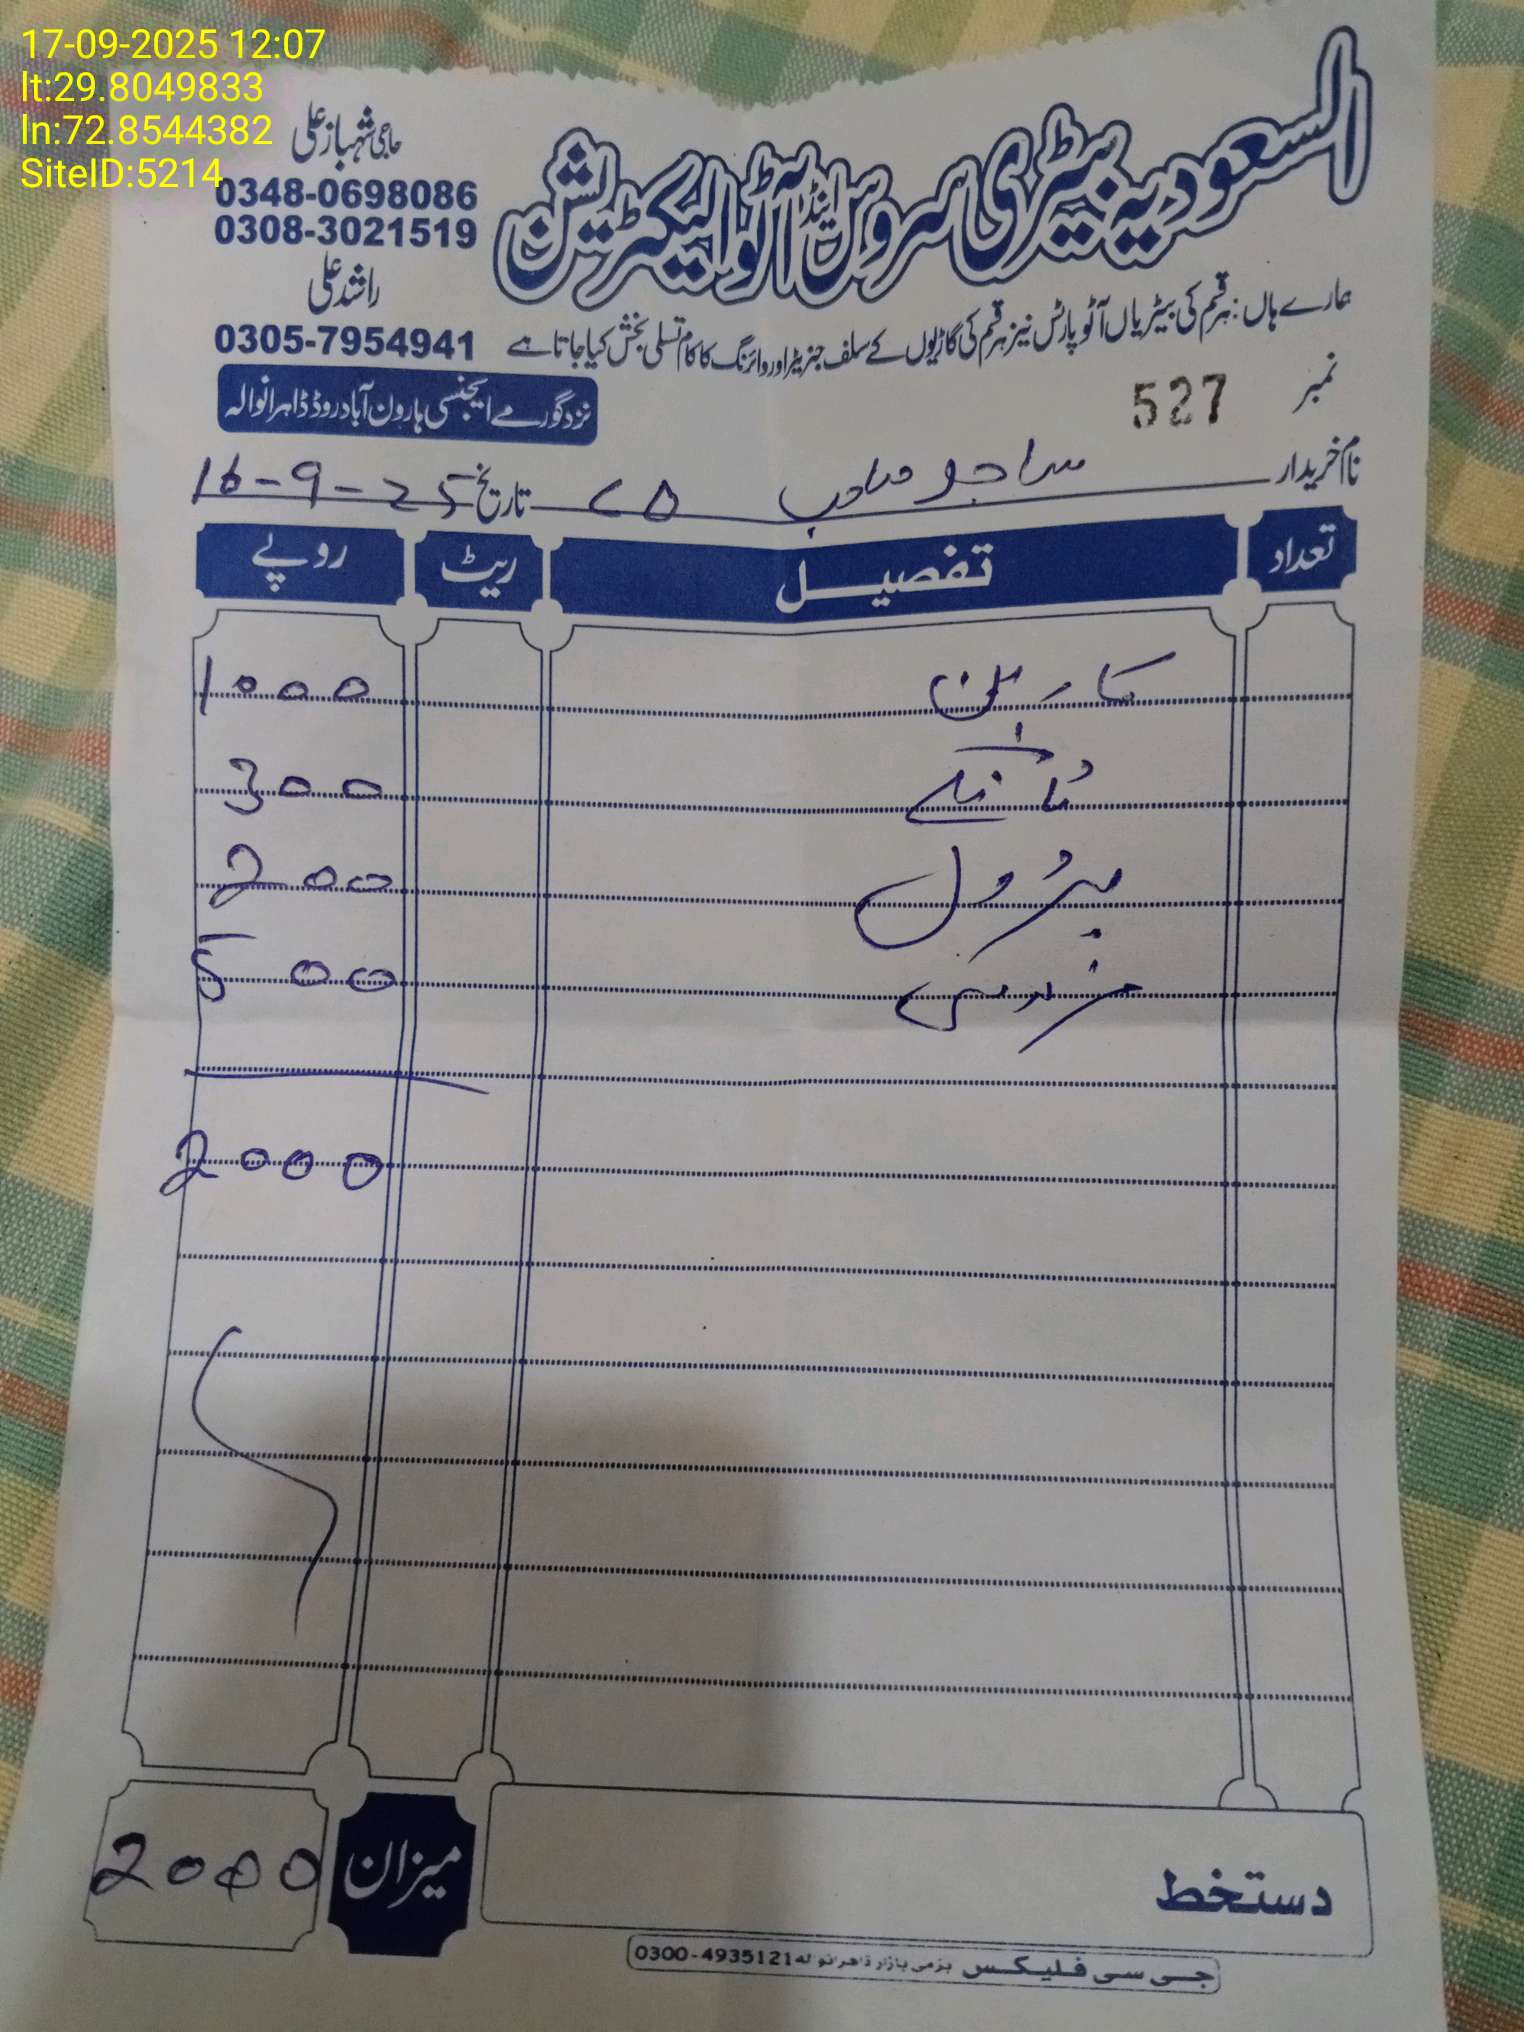 17-09-2025 12:07
lt:29.8049833
ln:72.8544382
SiteID:5214
السعودیہ بیٹری سروس اینڈ آٹو الیکٹریشن
حاجی شہباز علی
0348-0698086
0308-3021519
راشد علی
0305-7954941
ہمارے ہاں: ہر قسم کی بیٹریاں آٹو پارٹس نیز ہر قسم کی گاڑیوں کے سلف جنریٹر اور وائرنگ کا کام تسلی بخش کیا جاتا ہے
نزد گورمے ایجنسی ہارون آباد روڈ ڈاہرانوالہ
نمبر 527
نام خریدار ساجو صاحب CD تاریخ 16-9-25
تعداد تفصیل ریٹ روپے
کاربن 1000
ٹانکے 300
پیٹرول 200
مزدوری 500
2000
میزان 2000
دستخط
جی سی فلیکس بزمی بازار ڈاھرانوالہ 0300-4935121